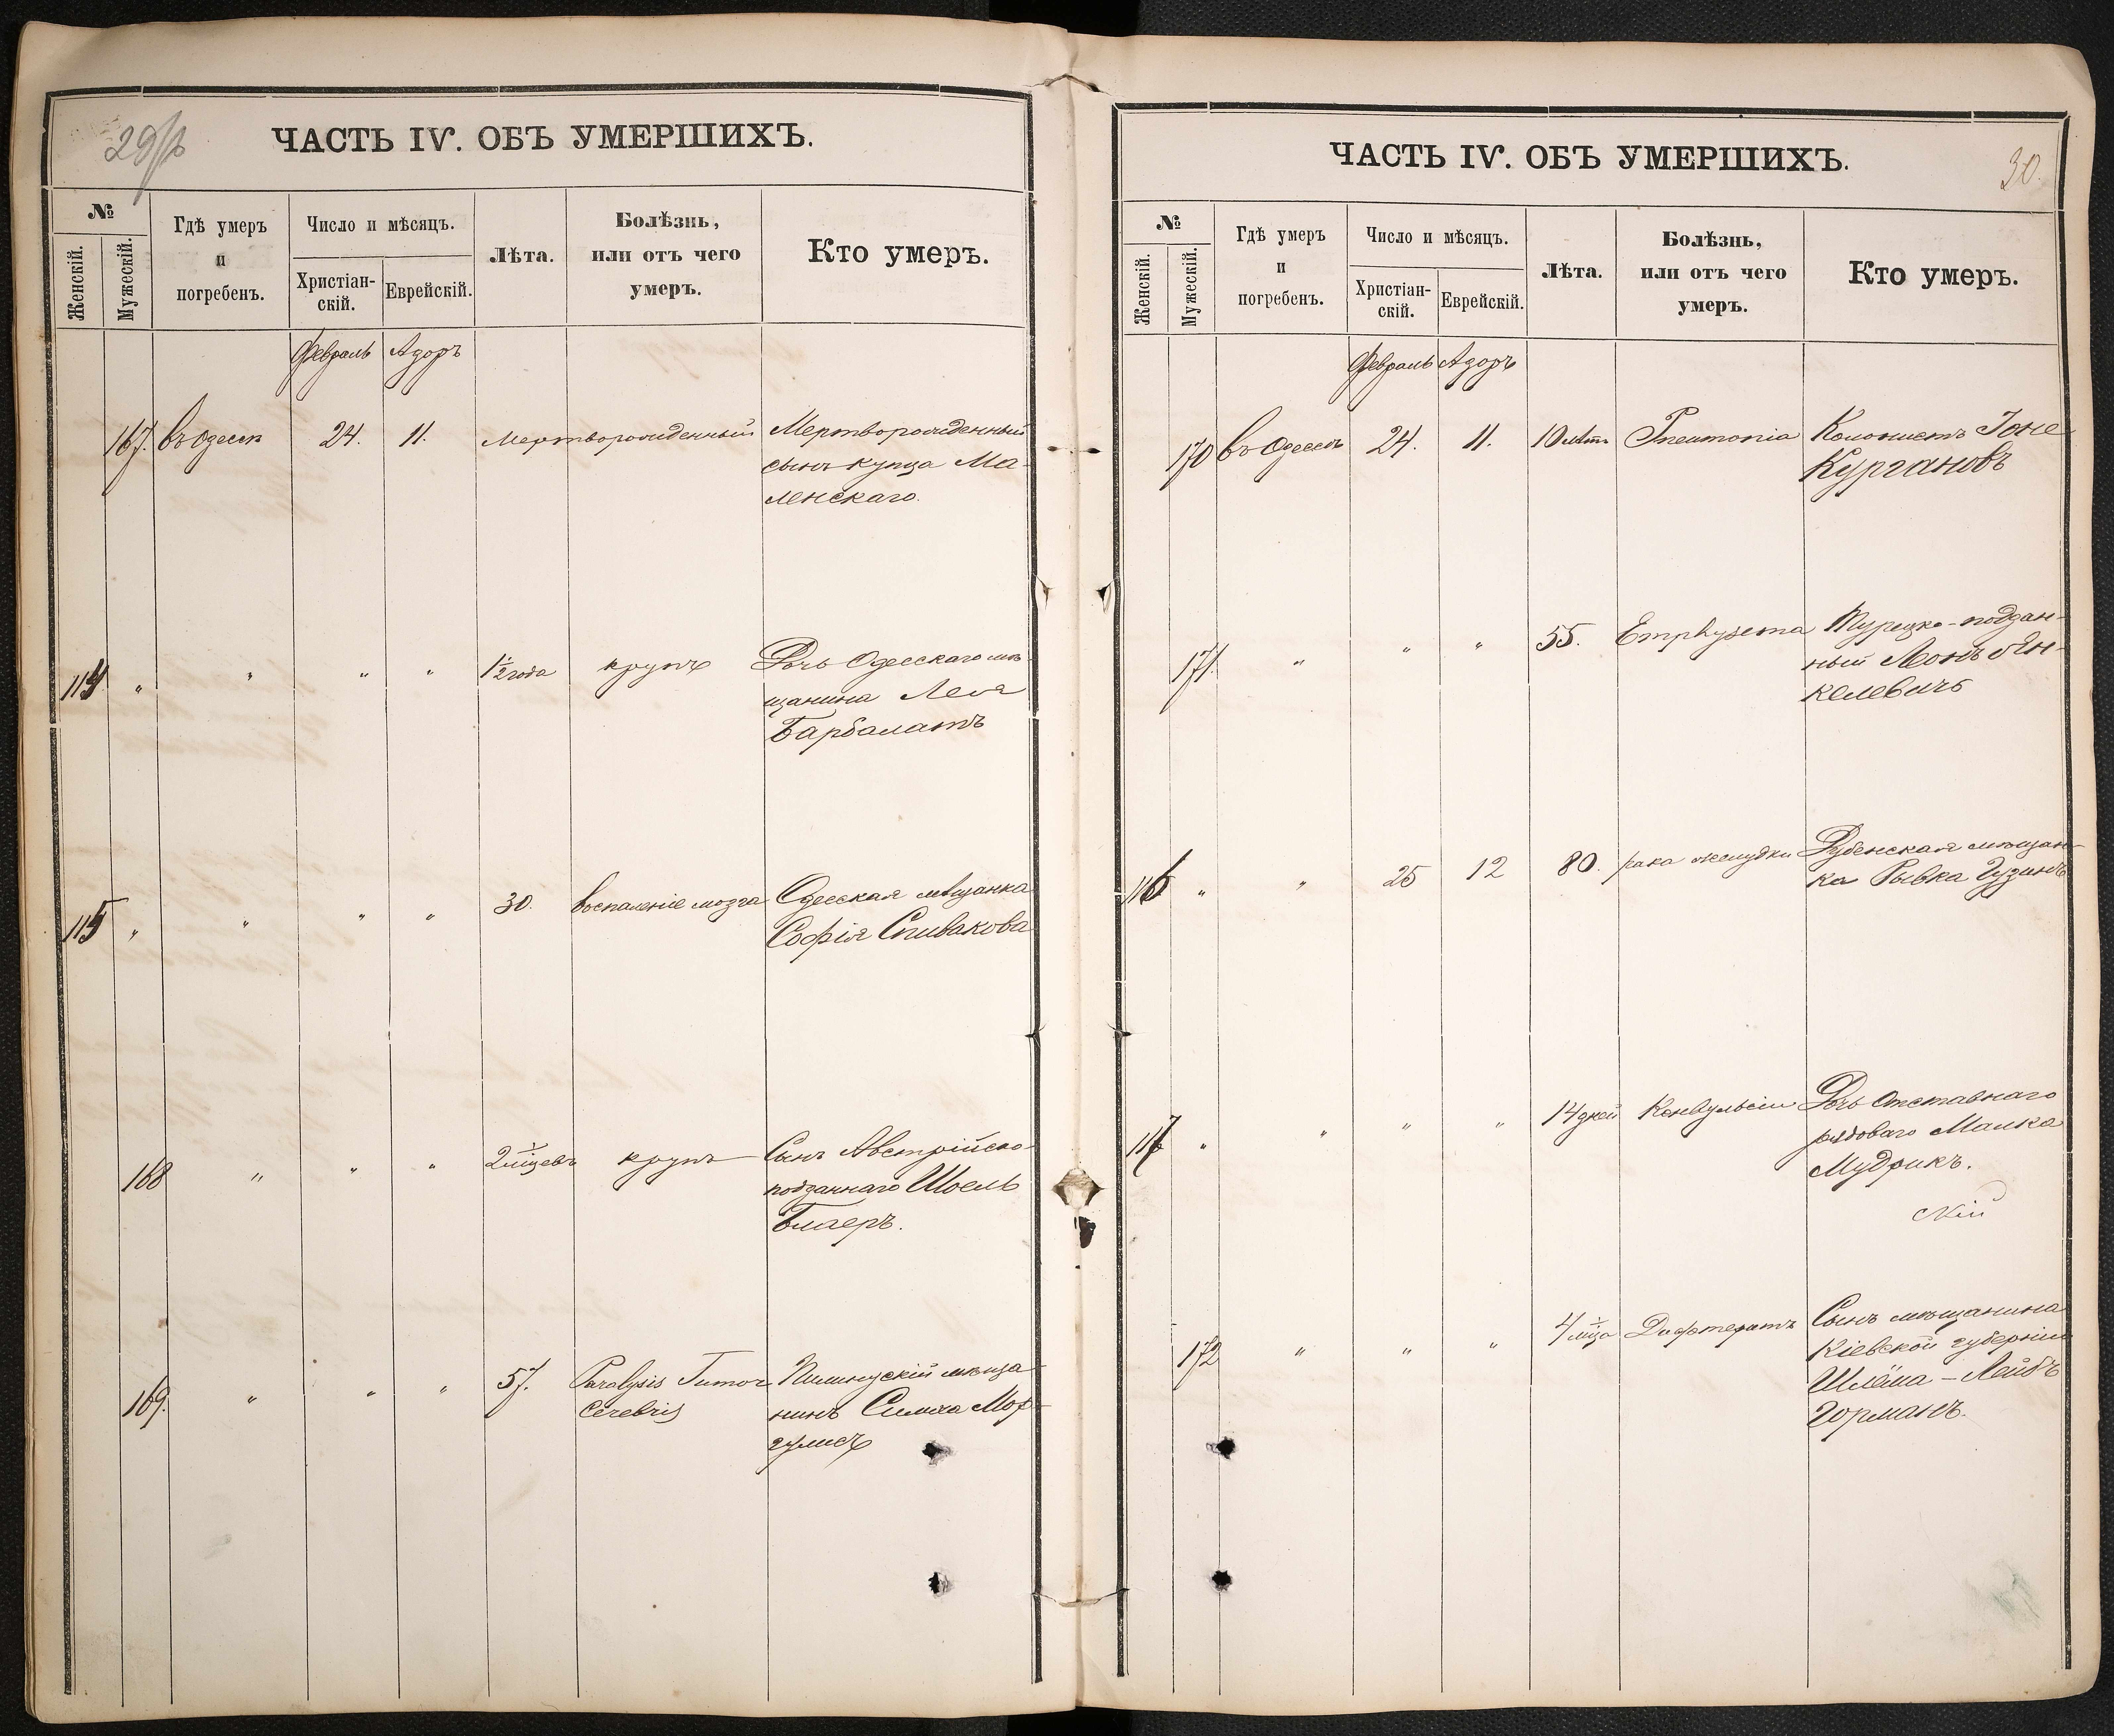 29/б
ЧАСТЬ IV. ОБЪ УМЕРШИХЪ.
№
Женскій.
Мужескій.
Гдѣ умеръ
и
погребенъ.
Число и мѣсяцъ.
Христіан-
скій.
Еврейскій.
Лѣта.
Болѣзнь,
или отъ чего
умеръ.
Кто умеръ.
Февраль Адоръ
167. въ Одессѣ 24. 11. Мертворожденный Мертворожденный
сынъ купца Ма-
ленскаго.
114 " " " " 1/2 года крупъ Дочь Одесскаго мѣ-
щанина Лея
Барбалатъ
115 " " " " 30. воспаленіе мозга Одесская мѣщанка
Софія Спивакова
168 " " " 2 мѣцевъ крупъ Сынъ Австрійско-
подданнаго Шоель
Блаеръ.
169. " " " 57. Paralysis Tumor
Cerebris
мѣща
нинъ Симха Мор-
гулисъ
ЧАСТЬ IV. ОБЪ УМЕРШИХЪ.
30.
№
Женскій.
Мужескій.
Гдѣ умеръ
и
погребенъ.
Число и мѣсяцъ.
Христіан-
скій.
Еврейскій.
Лѣта.
Болѣзнь,
или отъ чего
умеръ.
Кто умеръ.
Февраль Адоръ
170 въ Одессѣ 24. 11. 10 лѣтъ Pneumonia Колонистъ Іоне
Кургановъ
171. " " " 55. Emphysema Турецко-поддан-
ный Леонъ Ян-
келевичъ
116 " " 25 12 80. рака желудка Дубенская мѣщан-
ка Рывка Гузинъ
117 " " " " 14 дней Конвульсіи Дочь Отставнаго
рядоваго Малка
Мудрикъ.
172 " " " 4 мца Дифтеритъ Сынъ мѣщанина
Кіевской губерніи
Шлёма-Лейбъ
Горманъ.